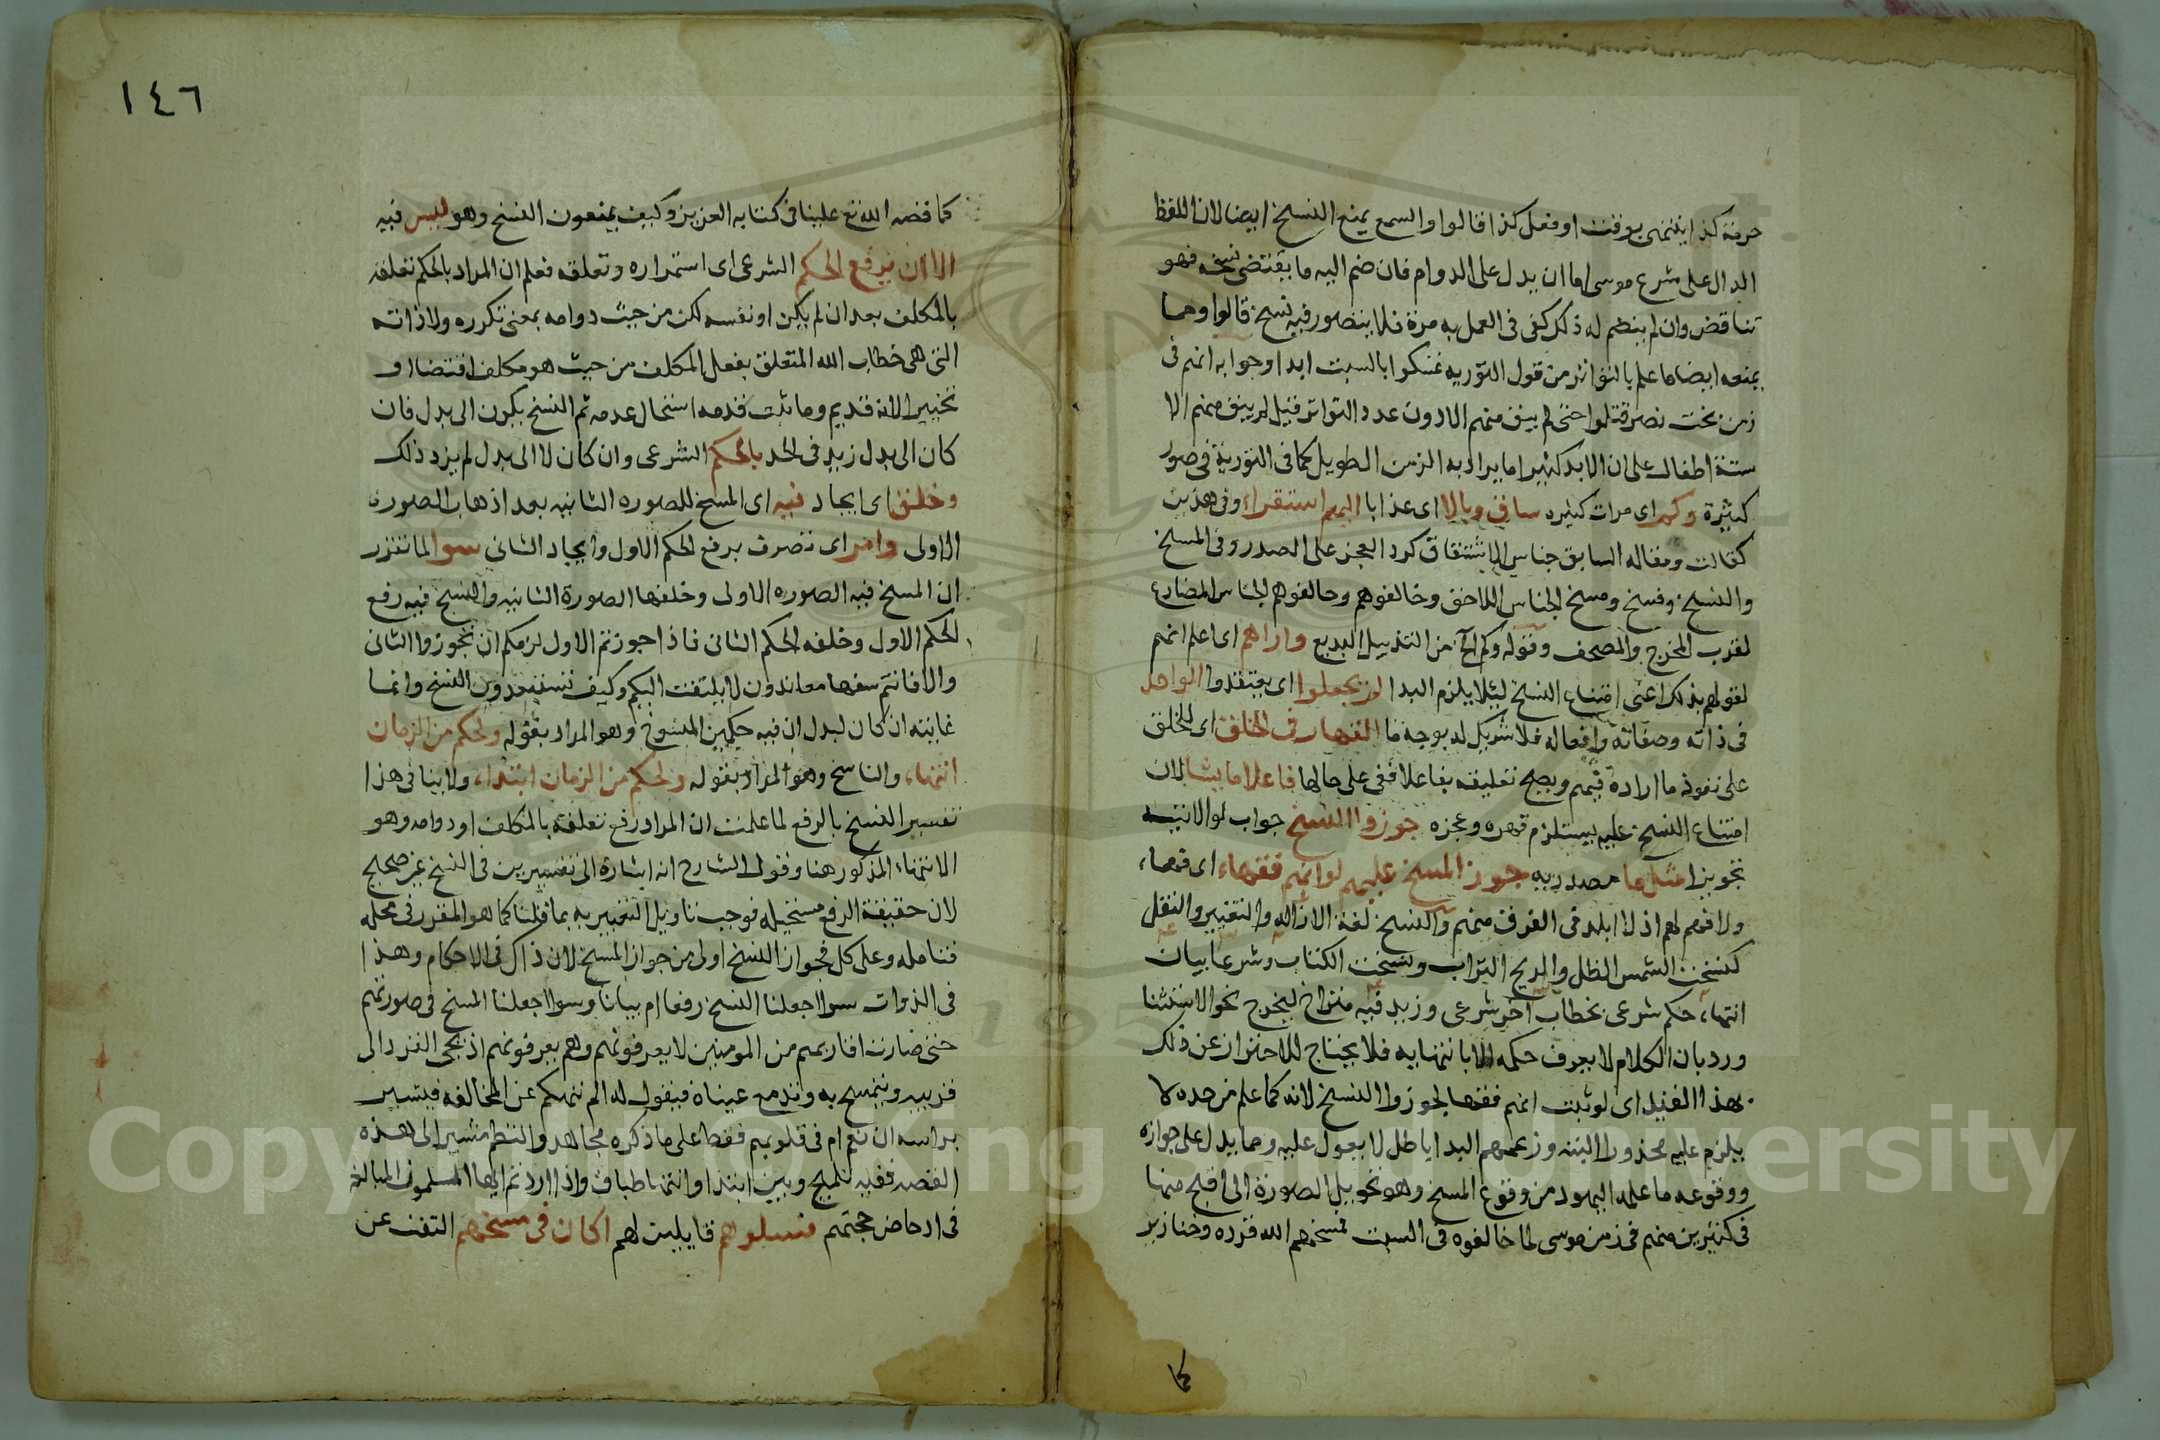 حرمة كذا ينتهى بوقت او فعل كذا قالوا والسمع يمنع النسخ ايضا لان اللفظ
الدال على شرع موسى اما ان يدل على الدوام فان ضم اليه ما يقتضى نسخه فهو
تناقض وان لم ينضم له ذلك كفى فى العمل به مرة فلا يتصور فيه نسخ قالوا ومما
يمنعه ايضا ما علم بالتواتر من قول التوريه تمسكوا بالسبت ابدا وجوابه انهم فى
زمن بخت نصر قتلوا حتى لم يبق منهم الا دون عدد التواتر قيل لم يبق منهم الا
ستة اطفال على ان الابد كثيرا ما يراد به الزمن الطويل كما فى التورية فى صور
كثيرة وكم اى مرات كثيره ساق وبالا اى عذابا اليهم استقراء وفى هذين
كقالت ومقاله السابق جناس الاشتقاق كرد العجز على الصدر وفى المسخ
والنسخ وفسخ ومسخ الجناس اللاحق وخالفوهم وحالفوهم الجناس المضارع
لقرب المخرج والمصحف وقوله وكم الخ من التذييل البديع واراهم اى اعلم انهم
لقولهم بذلك اعنى امتناع النسخ ليلا يلزم البدا لم يجعلوا اى يعتقدوا الواحد
فى ذاته وصفاته وافعاله فلا شريك له بوجه ما القهار فى الخلق اى للخلق
على نفوذ ما اراده فيهم ويصح تعليقه بفاعلا ففى على حالها فاعلا ما يشا لان
امتناع النسخ عليه يستلزم قهره وعجزه جوزوا النسخ جواب لو الاتيه
تجويزا مثل ما مصدريه جوز المسخ عليهم لو انهم فقهاء اى فهماء
ولا فهم لهم اذ لا ابلد فى الفرق منهم والنسخ لغة الازاله والتغيير والنقل
كنسخت الشمس الظل والريح التراب ونسخت الكتاب وشرعا بيان
انتهاء حكم شرعى بخطاب آخر شرعى وزيد فيه متراخ ليخرج نحو الاستثنا
ورد بان الكلام لا يعرف حكمه الا بانتهايه فلا يحتاج للاحتراز عن ذلك
بهذا القيد اى لو ثبت انهم فقها لجوزوا النسخ لانه كما علم من حده لا
يلزم عليه محذور البته وزعمهم البدا باطل لا يعول عليه ومما يدل على جوازه
ووقوعه ما علمه اليهود من وقوع المسخ وهو تحويل الصورة الى اقبح منها
فى كثيرين منهم فى زمن موسى لما خالفوه فى السبت فمسخهم الله قرده وخنازير
كما
١٤٦
كما قصه الله تع علينا فى كتابه العزيز وكيف يمنعون النسخ وهو ليس فيه
الا ان يرفع الحكم الشرعى اى استمراره وتعلقه فعلم ان المراد بالحكم تعلقه
بالمكلف بعد ان لم يكن او نفسه لكن من حيث دوامه بمعنى تكرره ولا ذاته
التى هى خطاب الله المتعلق بفعل المكلف من حيث هو مكلف اقتضا او
تخيير الانه قديم وما ثبت قدمه استحال عدمه ثم النسخ يكون الى بدل فان
كان الى بدل زيد فى الحد بالحكم الشرعى وان كان لا الى بدل لم يزد ذلك
وخلق اى ايجاد فيه اى المسخ للصوره الثانيه بعد اذهاب الصوره
الاولى وامر اى تصرف برفع الحكم الاول وايجاد الثانى سوا لما تقرر
ان المسخ فيه الصوره الاولى وخلفها الصورة الثانيه والنسخ فيه رفع
لحكم الاول وخلفه الحكم الثانى فاذا جوزتم الاول لزمكم ان تجوزوا الثانى
والا فانتم سفها معاندون لا يلتفت اليكم وكيف تستبعدون النسخ وانما
غايته ان كان لبدل ان فيه حكمين المنسوخ وهو المراد بقوله ولحكم من الزمان
انتهاء والناسخ وهو المراد بقوله ولحكم من الزمان ابتداء ولا ينافى هذا
تفسير النسخ بالرفع لما علمت ان المراد رفع تعلقه بالمكلف او دوامه وهو
الانتهاء المذكور هنا وقول الشارح انه اشارة الى تفسيرين فى النسخ غير صحيح
لان حقيقة الرفع مستحيله فوجب تاويل التعبير به بما قلنا كما هو المقرر فى محله
فتامله وعلى كل فجواز النسخ اولى من جواز المسخ لان ذاك فى الاحكام وهذا
فى الذوات سوا جعلنا النسخ رفعا ام بيانا وسوا جعلنا المسخ فى صورتهم
حتى صارت اقاربهم من المومنين لا يعرفونهم وهم يعرفونهم اذ يجى القرد الى
قريبه ويتمسح به وتدمع عيناه فيقول له الم ننهكم عن المخالفه فيشير
براسه ان نعم ام فى قلوبهم فقط على ما ذكره مجاهد والنظم مشير الى هذه
القصه ففيه تلميح وبين ابتدا وانتها طباق واذا اردتم ايها المسلمون المبالغه
فى ادحاض حجتهم فسلوهم قايلين لهم اكان فى مسخهم التفت عن